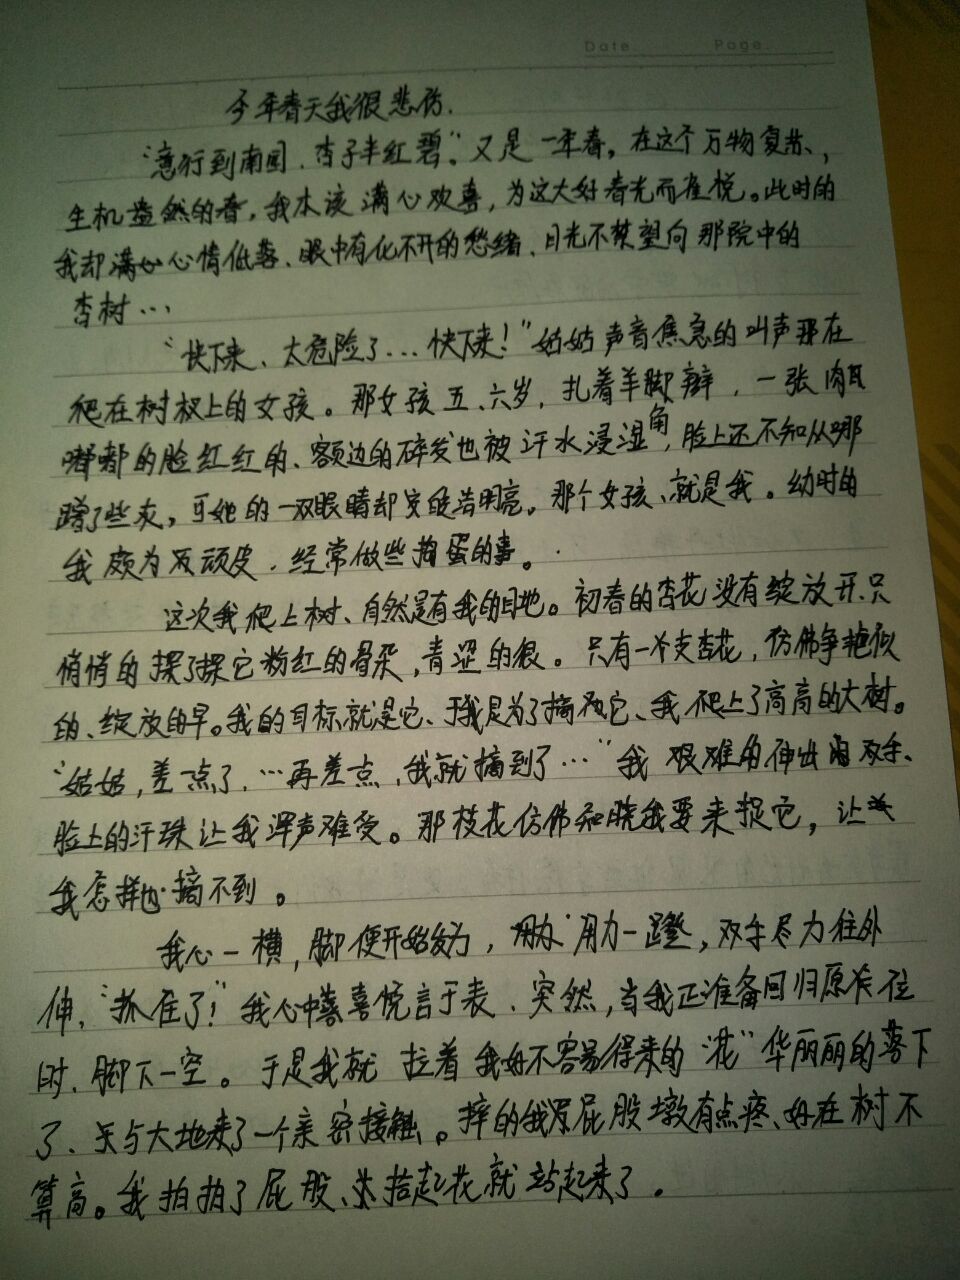 Date. Page.
今年春天我很悲伤.
“意行到南园，杏子半红碧”。又是一年春。在这个万物复苏、,
生机盎然的春，我本该满心欢喜，为这大好春光而雀悦。此时的
我却满心心情低落、眼中有化不开的愁绪、目光不禁望向那院中的
杏树…
“快下来、太危险了…快下来！”姑姑声音焦急的叫声那在
爬在树杈上的女孩。那女孩五、六岁，扎着羊脚辫，一张肉
嘟嘟的脸红红的、额边的碎发也被汗水浸湿角，脸上还不知从哪
蹭了些灰，可她的一双眼睛却浩明亮。那个女孩、就是我。幼时的
我颇为顽皮，经常做些捣蛋的事。
这次我爬上树、自然是有我的目地。初春的杏花没有绽放开、只
悄悄的探了探它粉红的骨朵，青涩的很。只有一个支杏花，仿佛争艳似
的、绽放的早。我的目标就是它、于我是为了摘它、我爬上了高高的大树。
“姑姑，差一点了，…再差点，我就摘到了…”我艰难的伸出双手、
脸上的汗珠让我浑声难受。那枝花仿佛和晓我要来捉它，让
我怎样也摘不到。
我心一横，脚便开始发为，用力一蹬，双手尽力往外
伸，“抓住了！”我心中喜喜悦言于表、突然，当我正准备回归原位
时、脚下一空。于是我就拉着我好不容易得来的“花”华丽丽的落下
了、与大地来了一个亲密接触。摔的我屁股墩有点疼、好在树不
算高。我拍拍了屁股、拾起花就站起来了。